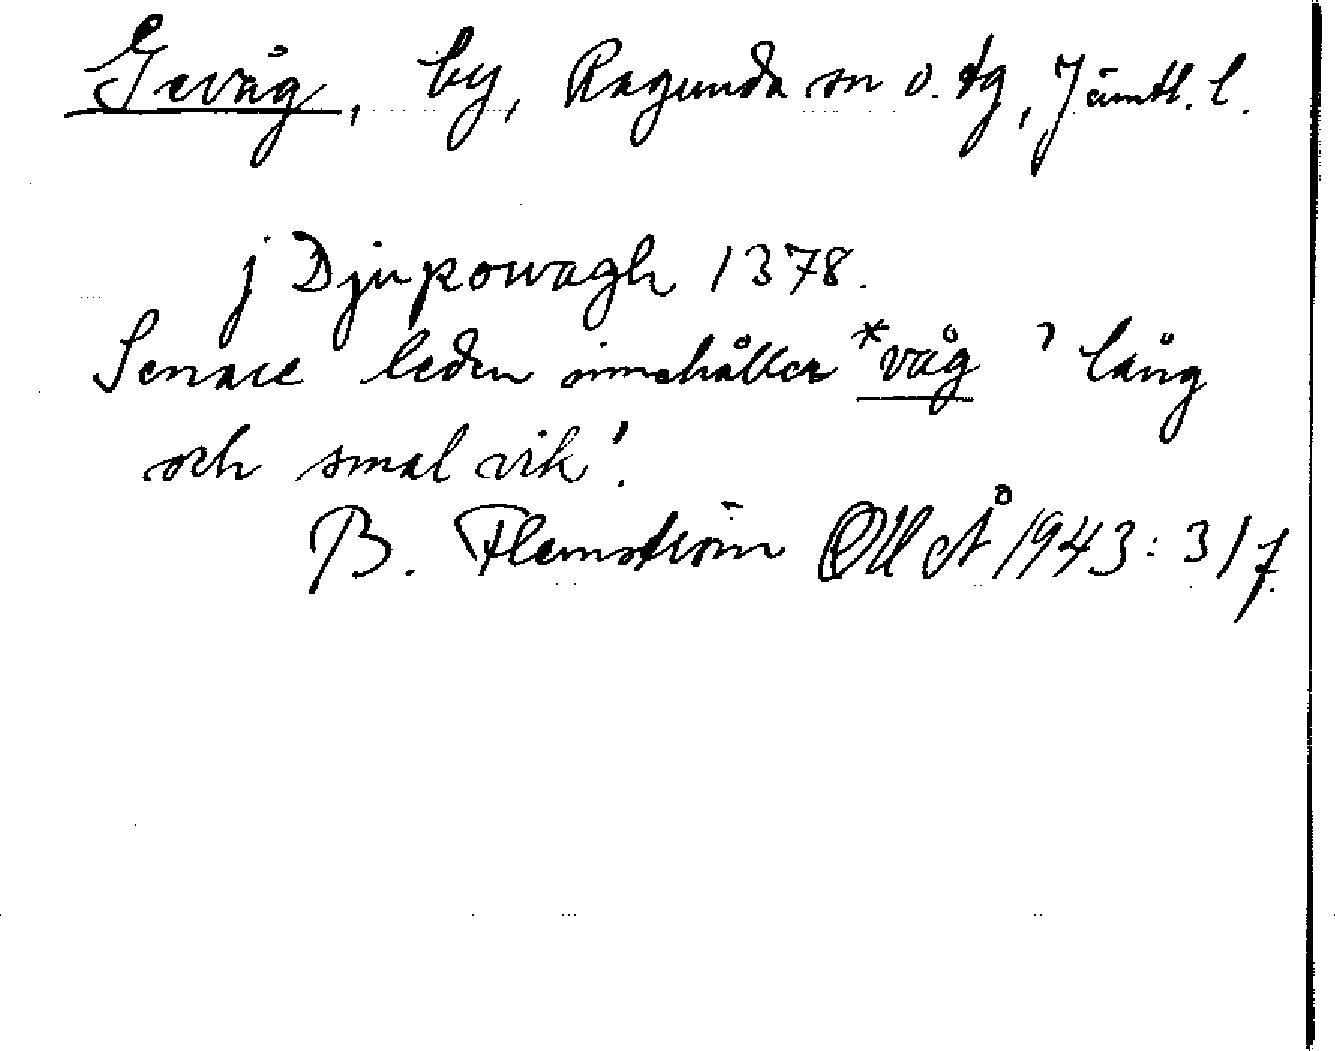 Gevåg, by, Ragunda sn o. tg, Jämtl. l.
j Djupowagh 1378.
Senare leden innehåller *våg 'lång
och smal vik'.
B. Flemström OUÅ 1943: 317.